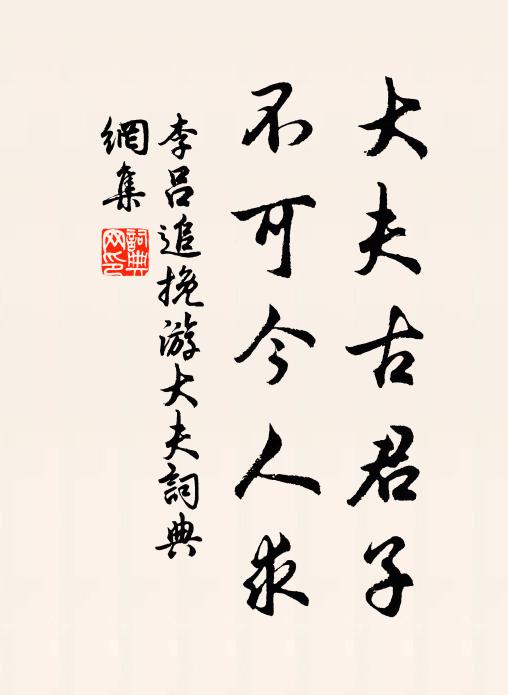 大夫古君子
不可今人求
李呂追挽游大夫詞典
網集
詞典網印